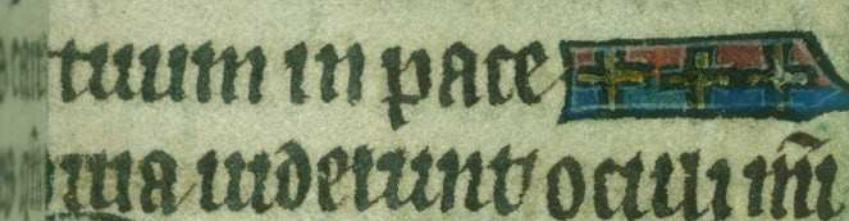 tuum in pace
quia uiderunt oculi mei